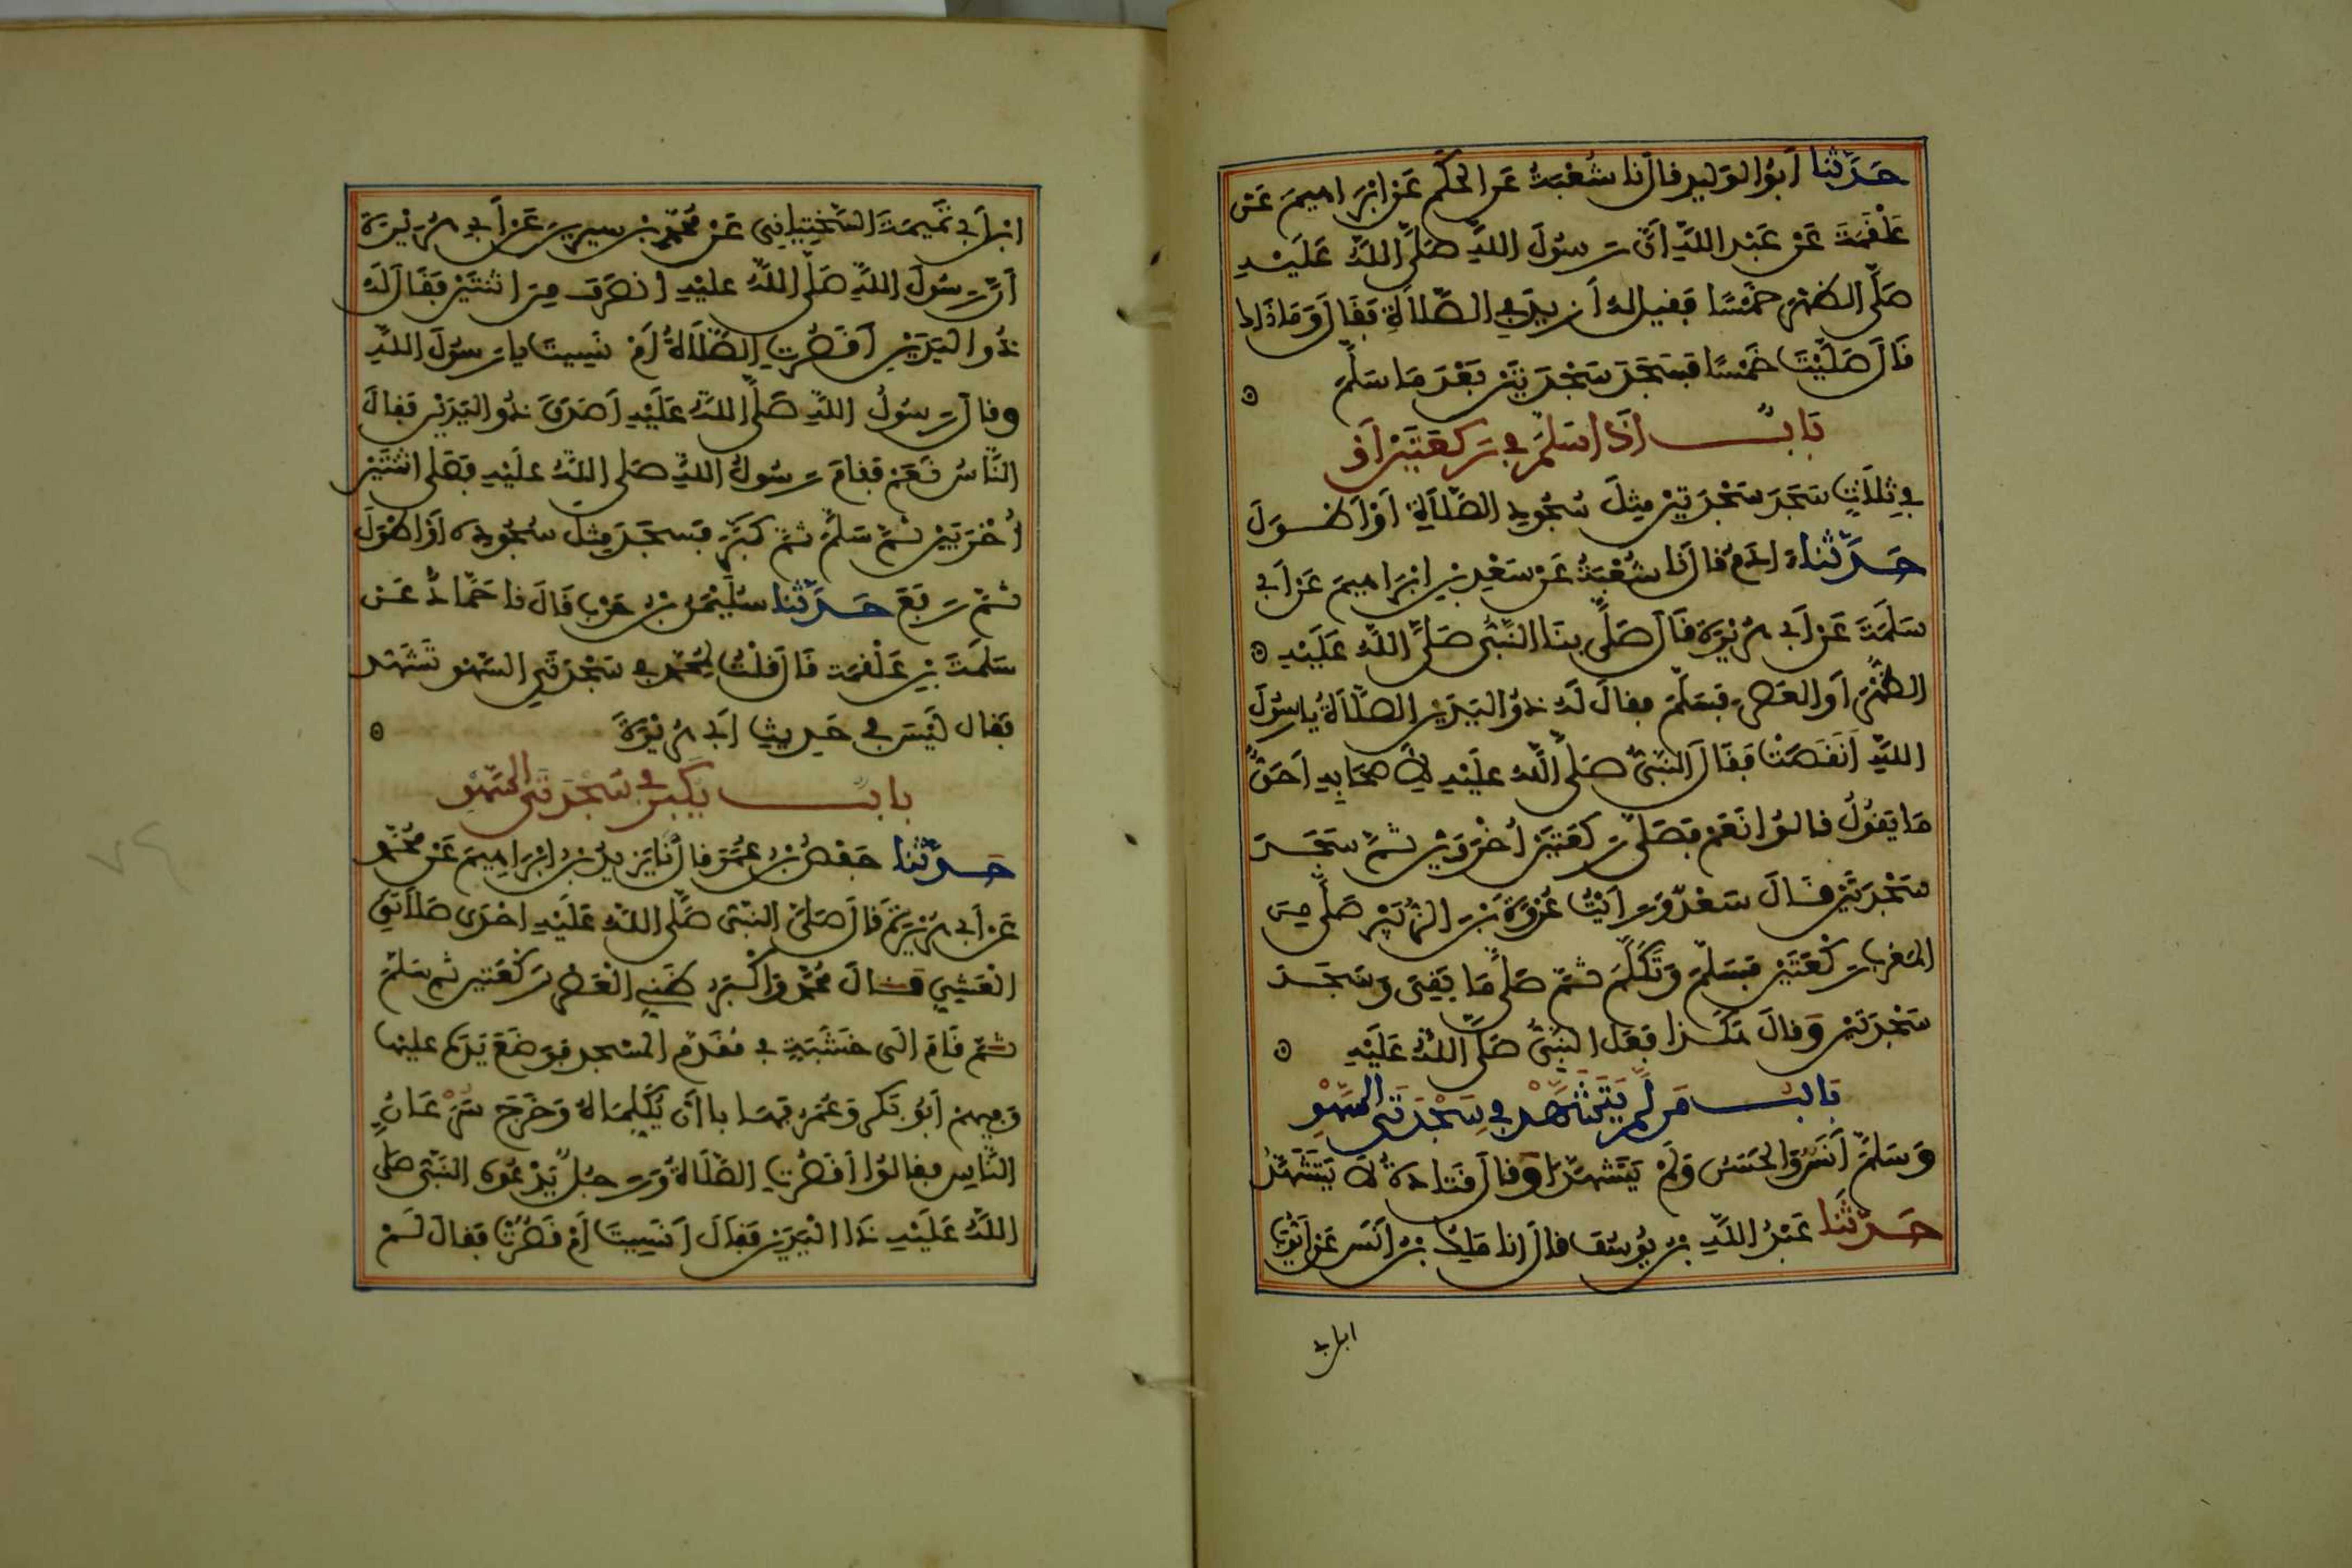 حَدَّثنا أبُو الوَلِيدِ قال نا شُعْبَةُ عَنِ الحَكَمِ عَنْ ابْرَاهِيمَ عَنْ
عَلْقَمَةَ عَنْ عَبْدِ اللَّهِ أنَّ رَسُولَ اللَّهِ صَلَّى اللَّهُ عَلَيْهِ
صَلَّى الظهْرَ خَمْسًا فقيل لهُ أزيدَ في الصَّلاَةِ فَقَالَ وَمَا ذَاك
قَالَ صَلَّيْتَ خَمْسًا فسَجَدَ سَجْدَتَيْنِ بَعْدَ مَا سَلَّمَ
بَابٌ اذَا سَلمَ في رَكعَتَيْنِ أوْ
في ثلاَثٍ سَجَدَ سَجْدَتَيْنِ مِثلَ سُجُودِ الصَّلاَةِ أوْ أطْوَلَ
حَدَّثناءادَمُ قال نا شُعْبَةُ عَنْ سَعْدِ بْنِ ابْرَاهِيمَ عَنْ أبي
سَلَمَةَ عَنْ أبي هُرَيْرَةَ قَالَ صَلَّى بِنَا النَّبِيُّ صَلَّى اللَّهُ عَلَيْهِ
الظهْرَ أوِ العَصْرَ فسَلَّمَ فقالَ لَهُ ذُو اليَدَيْنِ الصَّلاَةُ يا رسُولَ
اللَّهِ أنَقَصَتْ فَقَالَ النَّبِيُّ صَلَّى اللَّهُ عَلَيْهِ لأِصْحَابِهِ أحَقٌّ
مَا يَقُولُ قالوُا نَعَمْ فَصَلَّى رَكعَتَيْنِ أخْرَوَيْنِ ثمَّ سَجَدَ
سَجْدَتَيْنِ قَالَ سَعْدٌ وَرَأيْتُ عُرْوَةَ بْنَ الزُّبَيْرِ صَلَّى مِنَ
المَغرِب رَكْعَتَيْنِ فسَلَّمَ وَتَكَلَّمَ ثمَّ صَلَّى مَا بَقِيَ وَسَجَدَ
سَجْدَتَيْنِ وَقالَ هَكَذا فعَلَ النَّبِيُّ صَلَّى اللَّهُ عَلَيْهِ
بَابُ مَن لمْ يَتَشَهَّدْ في سَجْدَتَي السَّهْوِ
وَسَلَّمَ أنَسٌ وَالحَسَنُ وَلَمْ يَتَشَهَّدَا وَقال قَتَادَةُ لاَ يَتَشَهَّدُ
حَدَّثَنَا عَبْدُ اللَّهِ بْنُ يُوسُفَ قال انا مَلِكُ بْنُ أنَسٍ عَنْ أيُّوبَ
ابن أبي
ابْن أبي تَمِيمَةَ السَّخْتِيَانِي عَنْ مُحَمَّدِ بْنِ سيرِينَ عَنْ أبي هُرَيْرَةَ
أنَّ رَسُولَ اللَّهِ صَلَّى اللَّهُ عليْهِ انصَرَفَ مِنَ اثنَتَيْنِ فَقَالَ لَهُ
ذُو اليَدَيْنِ أقَصُرَتِ الصَّلاَةُ أمْ نَسِيتَ يا رَسُولَ اللَّهِ
وقال رَسُولُ اللَّهِ صَلَّى اللَّهُ عَلَيْهِ أصَدَقَ ذُو اليَدَيْنِ فقالَ
النَّاسُ نَعَمْ فقامَ رَسُولُ اللَّهِ صَلى اللَّهُ عليْهِ فصَلى اثنَتَيْنِ
أخْرَيَيْنِ ثمَّ سَلَّمَ ثمَّ كَبَّرَ فسَجَدَ مِثلَ سُجُودِهِ أوْ أطْوَلَ
ثمَّ رَفَعَ حَدَّثنا سُلَيْمَنُ بْنُ حَرْبٍ قَالَ نا حَمَّادٌ عَنْ
سَلَمَةَ بْنِ عَلْقَمَةَ قَالَ قلْتُ لِمُحَمَّدٍ في سَجْدَتَيِ السَّهْوِ تَشَهُّدٌ
فقال لَيْسَ في حَدِيثِ أبي هُرَيْرَةَ
بابٌ يُكَبِّرُ في سَجْدَتَيِ السَّهْوِ
حَدَّثَنا حَفْصُ بْنُ عُمَرَ قال نَا يَزِيدُ بْنُ ابْرَاهِيمَ عَنْ مُحَمَّدٍ
عَنْ أبي هُرَيْرَةَ قَالَ صَلَّى النَّبِيُّ صَلَّى اللَّهُ عَلَيْهِ احْدَى صَلاَتَيِ
الْعَشِيِّ قَالَ مُحَمَّدٌ وَاكْثَرُ ظَنِّي الْعَصْرَ رَكْعَتَيْنِ ثم سَلَّمَ
ثمَّ قَامَ الَى خَشَبَةٍ في مُقَدَّمِ المَسْجِدِ فوَضَعَ يَدَهُ عليْها
وَفِيهِمْ أبُو بَكْرٍ وَعُمَرُ فهَابا أنْ يُكَلِّمَاهُ وَخَرَجَ سَرَعَانُ
النَّاسِ فقالوُا أقَصُرَتِ الصَّلاَةُ وَرَجُلٌ يَدْعُوهُ النَّبِيُّ صَلَّى
اللَّهُ عَلَيْهِ ذَا الْيَدَيْنِ فَقَالَ أنَسِيتَ أمْ قَصُرَتْ فقالَ لَمْ